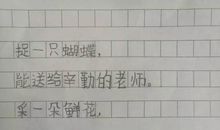 捉一只蝴蝶,
能送给辛勤的老师。
采一朵鲜花,